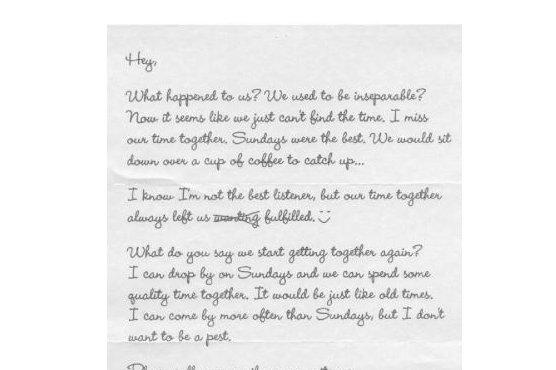 Hey,
What happened to us? We used to be inseparable?
Now it seems like we just can't find the time. I miss
our time together. Sundays were the best. We would sit
down over a cup of coffee to catch up...
I know I'm not the best listener, but our time together
always left us wanting fulfilled. :)
What do you say we start getting together again?
I can drop by on Sundays and we can spend some
quality time together. It would be just like old times.
I can come by more often than Sundays, but I don't
want to be a pest.